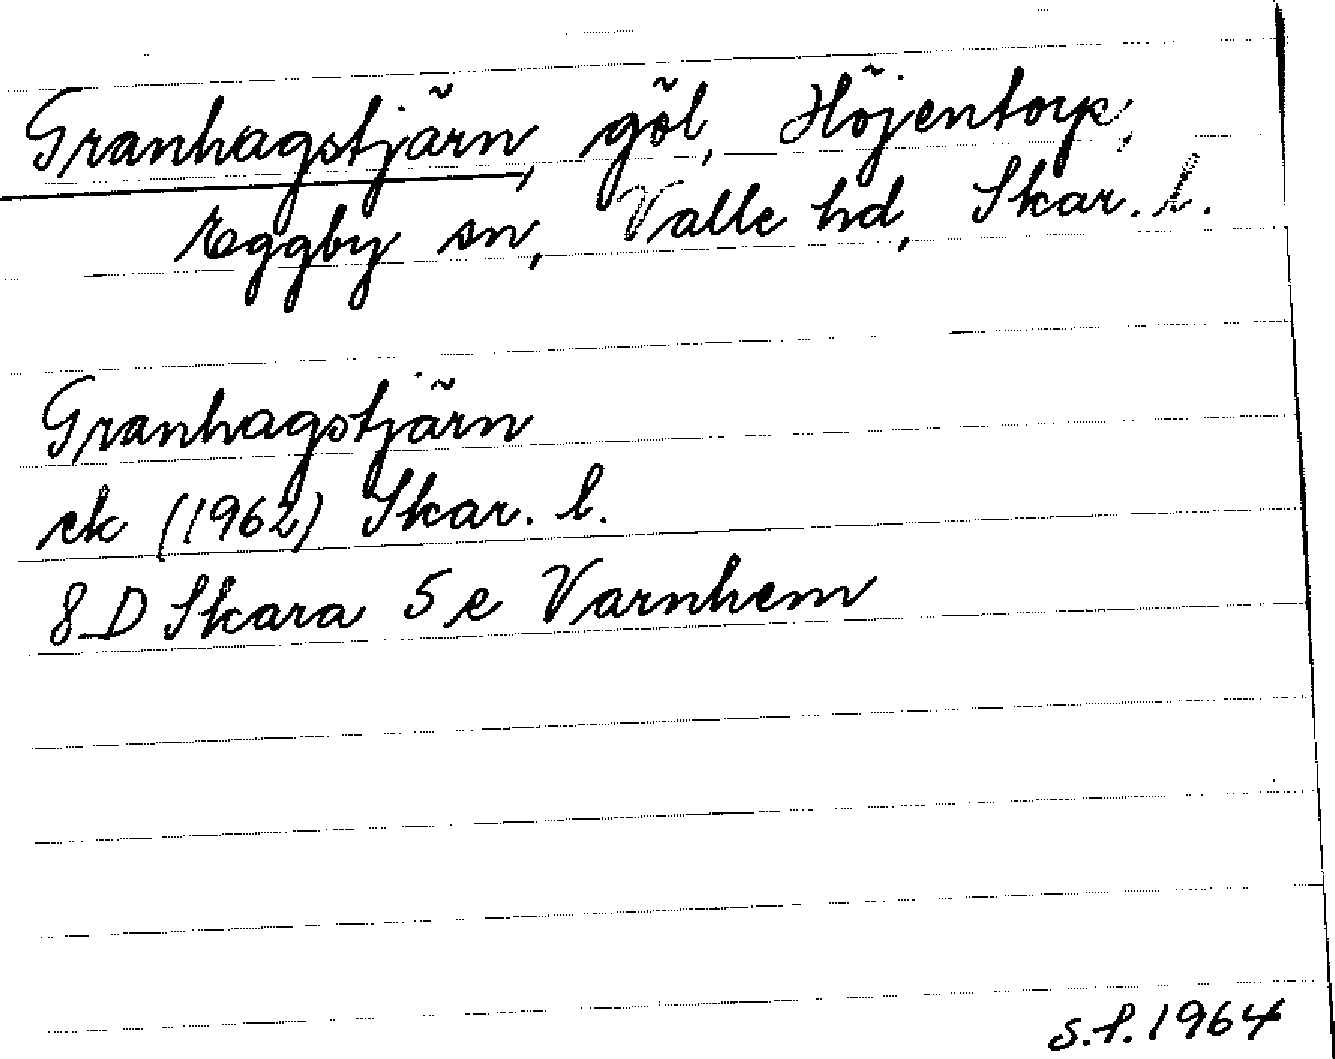 Granhagstjärn, göl, Höjentorp,
Eggby sn, Valle hd, Skar. l.
Granhagstjärn
ek (1962) Skar. l.
8 D Skara 5 e Varnhem
S.f. 1964